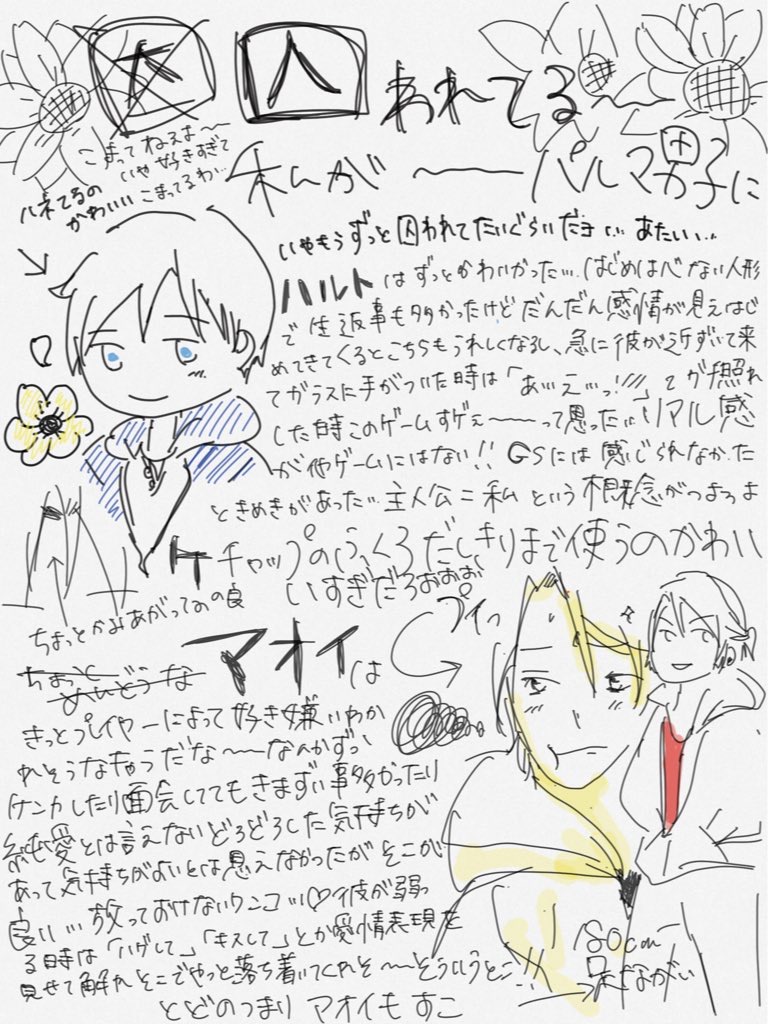 困 囚われてる〜
こまってねぇよ〜
いや好きすぎて
こまってるわ…
私が〜〜パルマ男子に
ハネてるの
かわいい
いやもうずっと囚われてたいぐらいだよ… あたい…
ハルトはずっとかわいかった…はじめは心ない人形
で生返事も多かったけどだんだん感情が見えはじ
めてきてくるとこちらもうれしくなるし、急に彼が近ずいて来
てガラスに手がついた時は「あ…え…っ!///」て
した時このゲームすげぇ〜〜って思った…リアル感
が他ゲームにはない!! GSには感じられなかった
ときめきがあった… 主人公=私という概念がつよつよ
ケチャップのふくろだしきりまで使うのかわい
いすぎだろおおお
ちょっとかみあがってるの良
プイっ
マオイは
きっとプレイヤーによって好き嫌いわか
れそうなきゃらだな〜〜なんかずっと
ケンカしたり面会しててもきまずい事多かったり
純愛とは言えないどろどろした気持ちが
あって気持ちがよいとは思えなかったがそこが
良い… 放っておけないワンコ…♡彼が弱っ
る時は「ハグして」「キスして」とか愛情表現を
見せて解れそこでやっと落ち着いてくれそ〜〜そういうとこ!!
とどのつまり マオイもすこ
180cm
足だながい